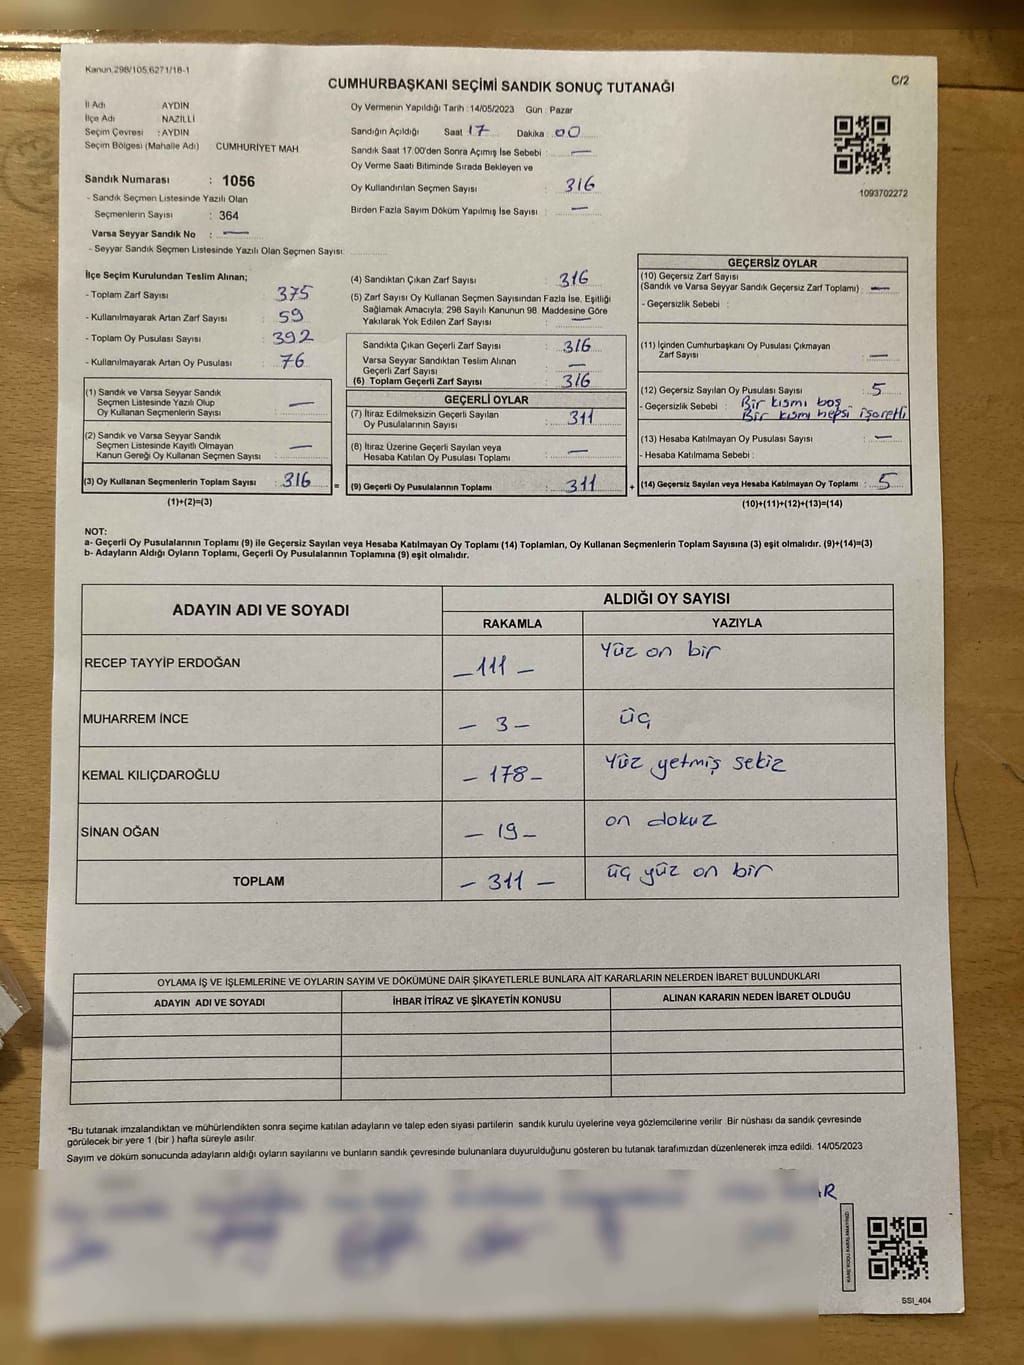 Kanun,298/105,6271/18-1
C/2
CUMHURBAŞKANI SEÇİMİ SANDIK SONUÇ TUTANAĞI
İl Adı AYDIN
İlçe Adı NAZİLLİ
Seçim Çevresi : AYDIN
Seçim Bölgesi (Mahalle Adı) CUMHURİYET MAH
Sandık Numarası : 1056
- Sandık Seçmen Listesinde Yazılı Olan
Seçmenlerin Sayısı : 364
Varsa Seyyar Sandık No : —
- Seyyar Sandık Seçmen Listesinde Yazılı Olan Seçmen Sayısı:
Oy Vermenin Yapıldığı Tarih :14/05/2023 Gün : Pazar
Sandığın Açıldığı Saat 17 Dakika : 00
Sandık Saat 17.00'den Sonra Açımış İse Sebebi : —
Oy Verme Saati Bitiminde Sırada Bekleyen ve
Oy Kullandırılan Seçmen Sayısı : 316
Birden Fazla Sayım Döküm Yapılmış İse Sayısı : —
1093702272
İlçe Seçim Kurulundan Teslim Alınan;
- Toplam Zarf Sayısı : 375
- Kullanılmayarak Artan Zarf Sayısı : 59
- Toplam Oy Pusulası Sayısı : 392
- Kullanılmayarak Artan Oy Pusulası : 76
(1) Sandık ve Varsa Seyyar Sandık
Seçmen Listesinde Yazılı Olup
Oy Kullanan Seçmenlerin Sayısı : —
(2) Sandık ve Varsa Seyyar Sandık
Seçmen Listesinde Kayıtlı Olmayan
Kanun Gereği Oy Kullanan Seçmen Sayısı : —
(3) Oy Kullanan Seçmenlerin Toplam Sayısı : 316 =
(1)+(2)=(3)
(4) Sandıktan Çıkan Zarf Sayısı : 316
(5) Zarf Sayısı Oy Kullanan Seçmen Sayısından Fazla İse, Eşitliği
Sağlamak Amacıyla; 298 Sayılı Kanunun 98. Maddesine Göre
Yakılarak Yok Edilen Zarf Sayısı : —
Sandıkta Çıkan Geçerli Zarf Sayısı : 316
Varsa Seyyar Sandıktan Teslim Alınan
Geçerli Zarf Sayısı : —
(6) Toplam Geçerli Zarf Sayısı : 316
GEÇERLİ OYLAR
(7) İtiraz Edilmeksizin Geçerli Sayılan
Oy Pusulalarının Sayısı : 311
(8) İtiraz Üzerine Geçerli Sayılan veya
Hesaba Katılan Oy Pusulası Toplamı : —
(9) Geçerli Oy Pusulalarının Toplamı : 311 +
GEÇERSİZ OYLAR
(10) Geçersiz Zarf Sayısı
(Sandık ve Varsa Seyyar Sandık Geçersiz Zarf Toplamı) : —
- Geçersizlik Sebebi :
(11) İçinden Cumhurbaşkanı Oy Pusulası Çıkmayan
Zarf Sayısı : —
(12) Geçersiz Sayılan Oy Pusulası Sayısı : 5
- Geçersizlik Sebebi : Bir kısmı boş
Bir kısmı hepsi işaretli
(13) Hesaba Katılmayan Oy Pusulası Sayısı : —
- Hesaba Katılmama Sebebi :
(14) Geçersiz Sayılan veya Hesaba Katılmayan Oy Toplamı : 5
(10)+(11)+(12)+(13)=(14)
NOT:
a- Geçerli Oy Pusulalarının Toplamı (9) ile Geçersiz Sayılan veya Hesaba Katılmayan Oy Toplamı (14) Toplamları, Oy Kullanan Seçmenlerin Toplam Sayısına (3) eşit olmalıdır. (9)+(14)=(3)
b- Adayların Aldığı Oyların Toplamı, Geçerli Oy Pusulalarının Toplamına (9) eşit olmalıdır.
ADAYIN ADI VE SOYADI ALDIĞI OY SAYISI
RAKAMLA YAZIYLA
RECEP TAYYİP ERDOĞAN —111 — Yüz on bir
MUHARREM İNCE — 3 — üç
KEMAL KILIÇDAROĞLU — 178 — Yüz yetmiş sekiz
SİNAN OĞAN — 19 — on dokuz
TOPLAM — 311 — üç yüz on bir
OYLAMA İŞ VE İŞLEMLERİNE VE OYLARIN SAYIM VE DÖKÜMÜNE DAİR ŞİKAYETLERLE BUNLARA AİT KARARLARIN NELERDEN İBARET BULUNDUKLARI
ADAYIN ADI VE SOYADI İHBAR İTİRAZ VE ŞİKAYETİN KONUSU ALINAN KARARIN NEDEN İBARET OLDUĞU
*Bu tutanak imzalandıktan ve mühürlendikten sonra seçime katılan adayların ve talep eden siyasi partilerin sandık kurulu üyelerine veya gözlemcilerine verilir. Bir nüshası da sandık çevresinde
görülecek bir yere 1 (bir ) hafta süreyle asılır.
Sayım ve döküm sonucunda adayların aldığı oyların sayılarını ve bunların sandık çevresinde bulunanlara duyurulduğunu gösteren bu tutanak tarafımızdan düzenlenerek imza edildi. 14/05/2023
SSI_404